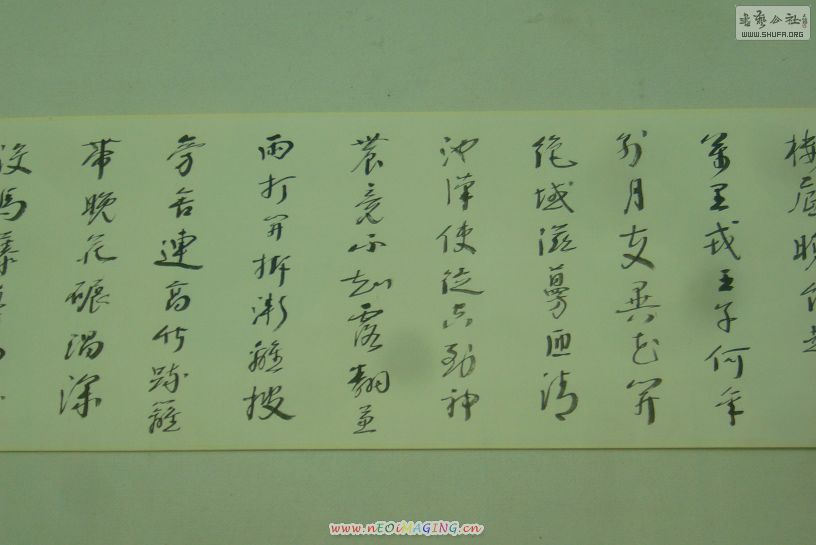 樓底晚飯越
萬里戎王子何年
別月支異花開
絕域滋蔓匝清
池漢使徒空到神
農竟不知露翻兼
雨打開拆漸離披
旁舍連高竹疎籬
帶晚花碾渦深
沒馬藤蔓
書藝公社
WWW.SHUFA.ORG
www.nEOiMAGING.cn